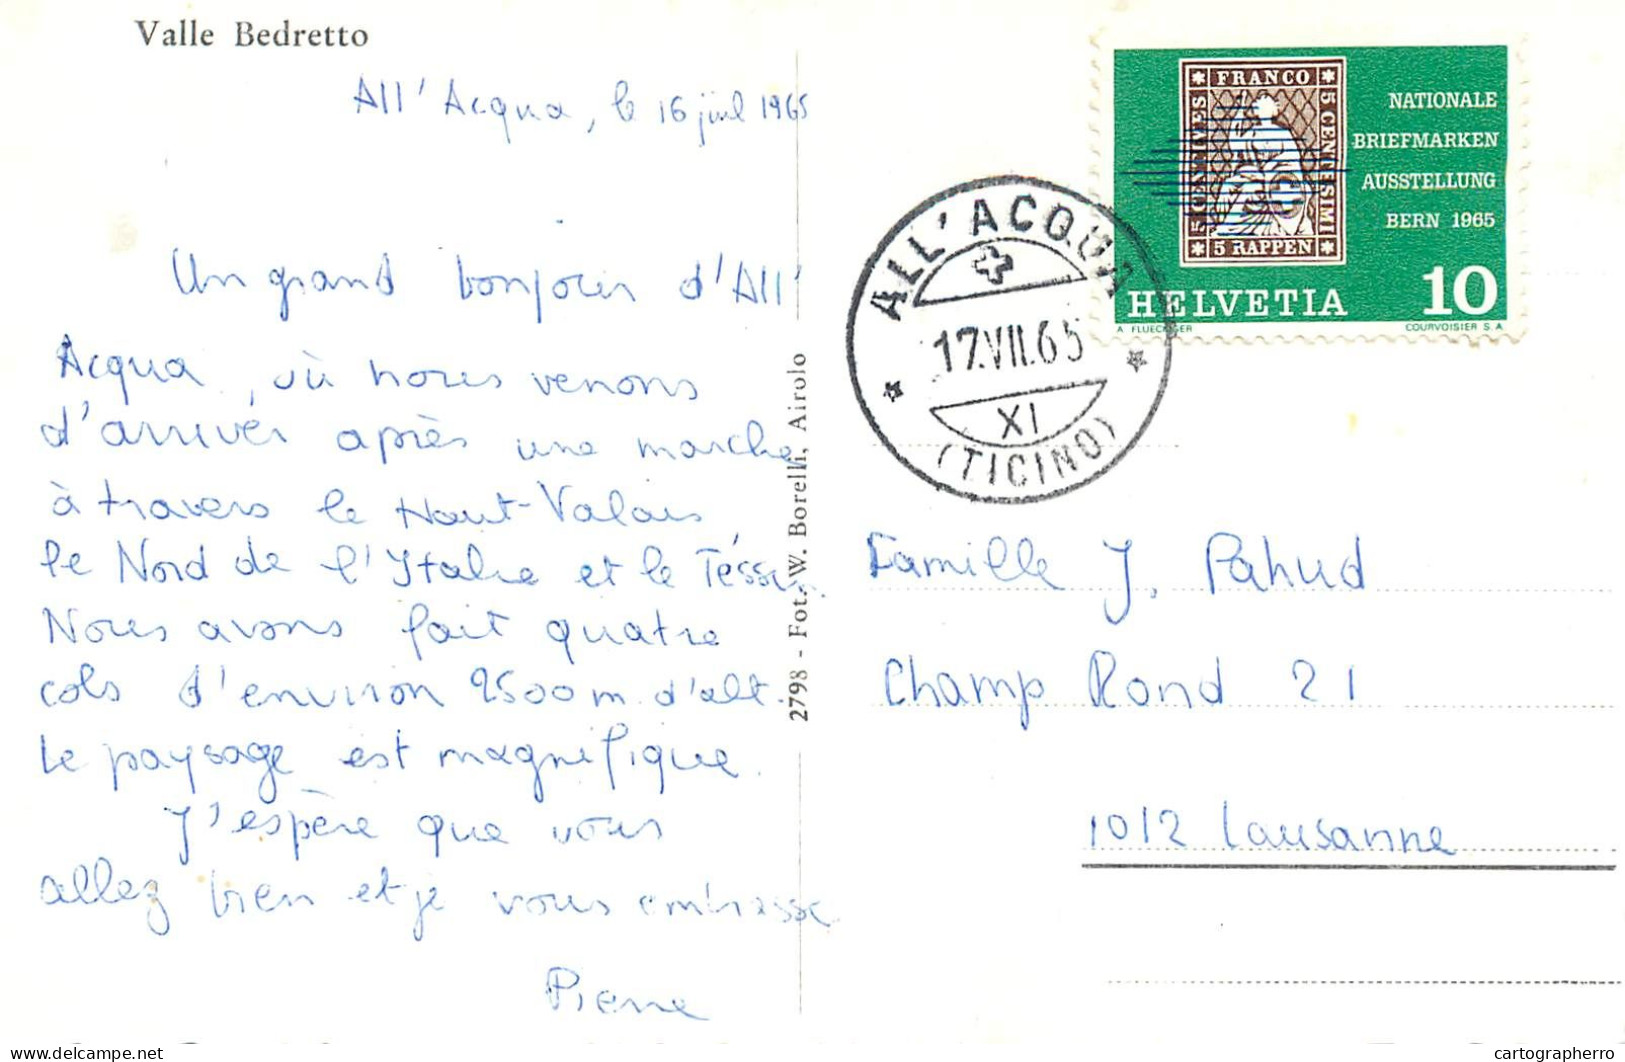 Valle Bedretto
All' Acqua, le 16 juil 1965
Un grand bonjour d'All'
Acqua, où nous venons
d'arriver après une marche
à travers le Haut-Valais,
le Nord de l'Italie et le Tessin.
Nous avons fait quatre
cols d'environ 2500 m. d'alt.
Le paysage est magnifique.
J'espère que vous
allez bien et je vous embrasse
Pierre
2798 - Fot. W. Borelli, Airolo
ALL'ACQUA
17.VII.65
XI
(TICINO)
FRANCO
5 CENTIMES
5 CENTESIMI
5 RAPPEN
NATIONALE
BRIEFMARKEN
AUSSTELLUNG
BERN 1965
HELVETIA 10
A. FLUECKIGER COURVOISIER S.A.
Famille J. Pahud
Champ Rond 21
1012 Lausanne
delcampe.net
cartographerro